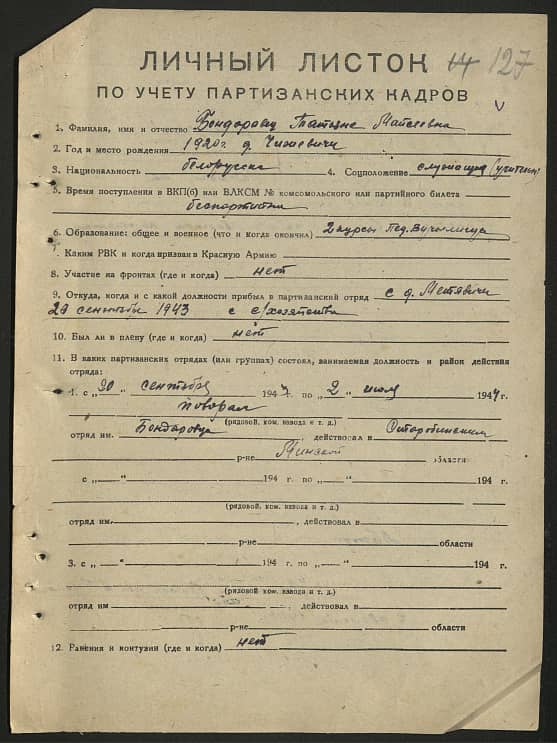 ЛИЧНЫЙ ЛИСТОК 127
ПО УЧЕТУ ПАРТИЗАНСКИХ КАДРОВ
1. Фамилия, имя и отчество Матвеевна
2. Год и место рождения 1920г д. Чижевичи
3. Национальность белорусска 4. Соцположение служащая (учитель)
5. Время поступления в ВКП(б) или ВЛКСМ № комсомольского или партийного билета
беспартийная
6. Образование: общее и военное (что и когда окончил) 2 курса Пед.
7. Каким РВК и когда призван в Красную Армию
8. Участие на фронтах (где и когда) нет
9. Откуда, когда и с какой должности прибыл в партизанский отряд с д. Метявичи
20 сентября 1943 с с/хозяйства
10. Был ли в плену (где и когда) нет
11. В каких партизанских отрядах (или группах) состоял, занимаемая должность и район действия
отряда:
1. с „20" сентября 1943 г. по „2" июля 1944 г.
поваром
(рядовой, ком. взвода и т. д.)
отряд им. Бондаровца, действовал в Старобинским
р-не Минской области
с „ " 194 г. по „ " 194 г.
(рядовой, ком. взвода и т. д.)
отряд им. , действовал в
р-не области
3. с „ " 194 г. по „ " 194 г.
(рядовой, ком. взвода и т. д.)
отряд им , действовал в
р-не области
12. Ранения и контузии (где и когда) нет